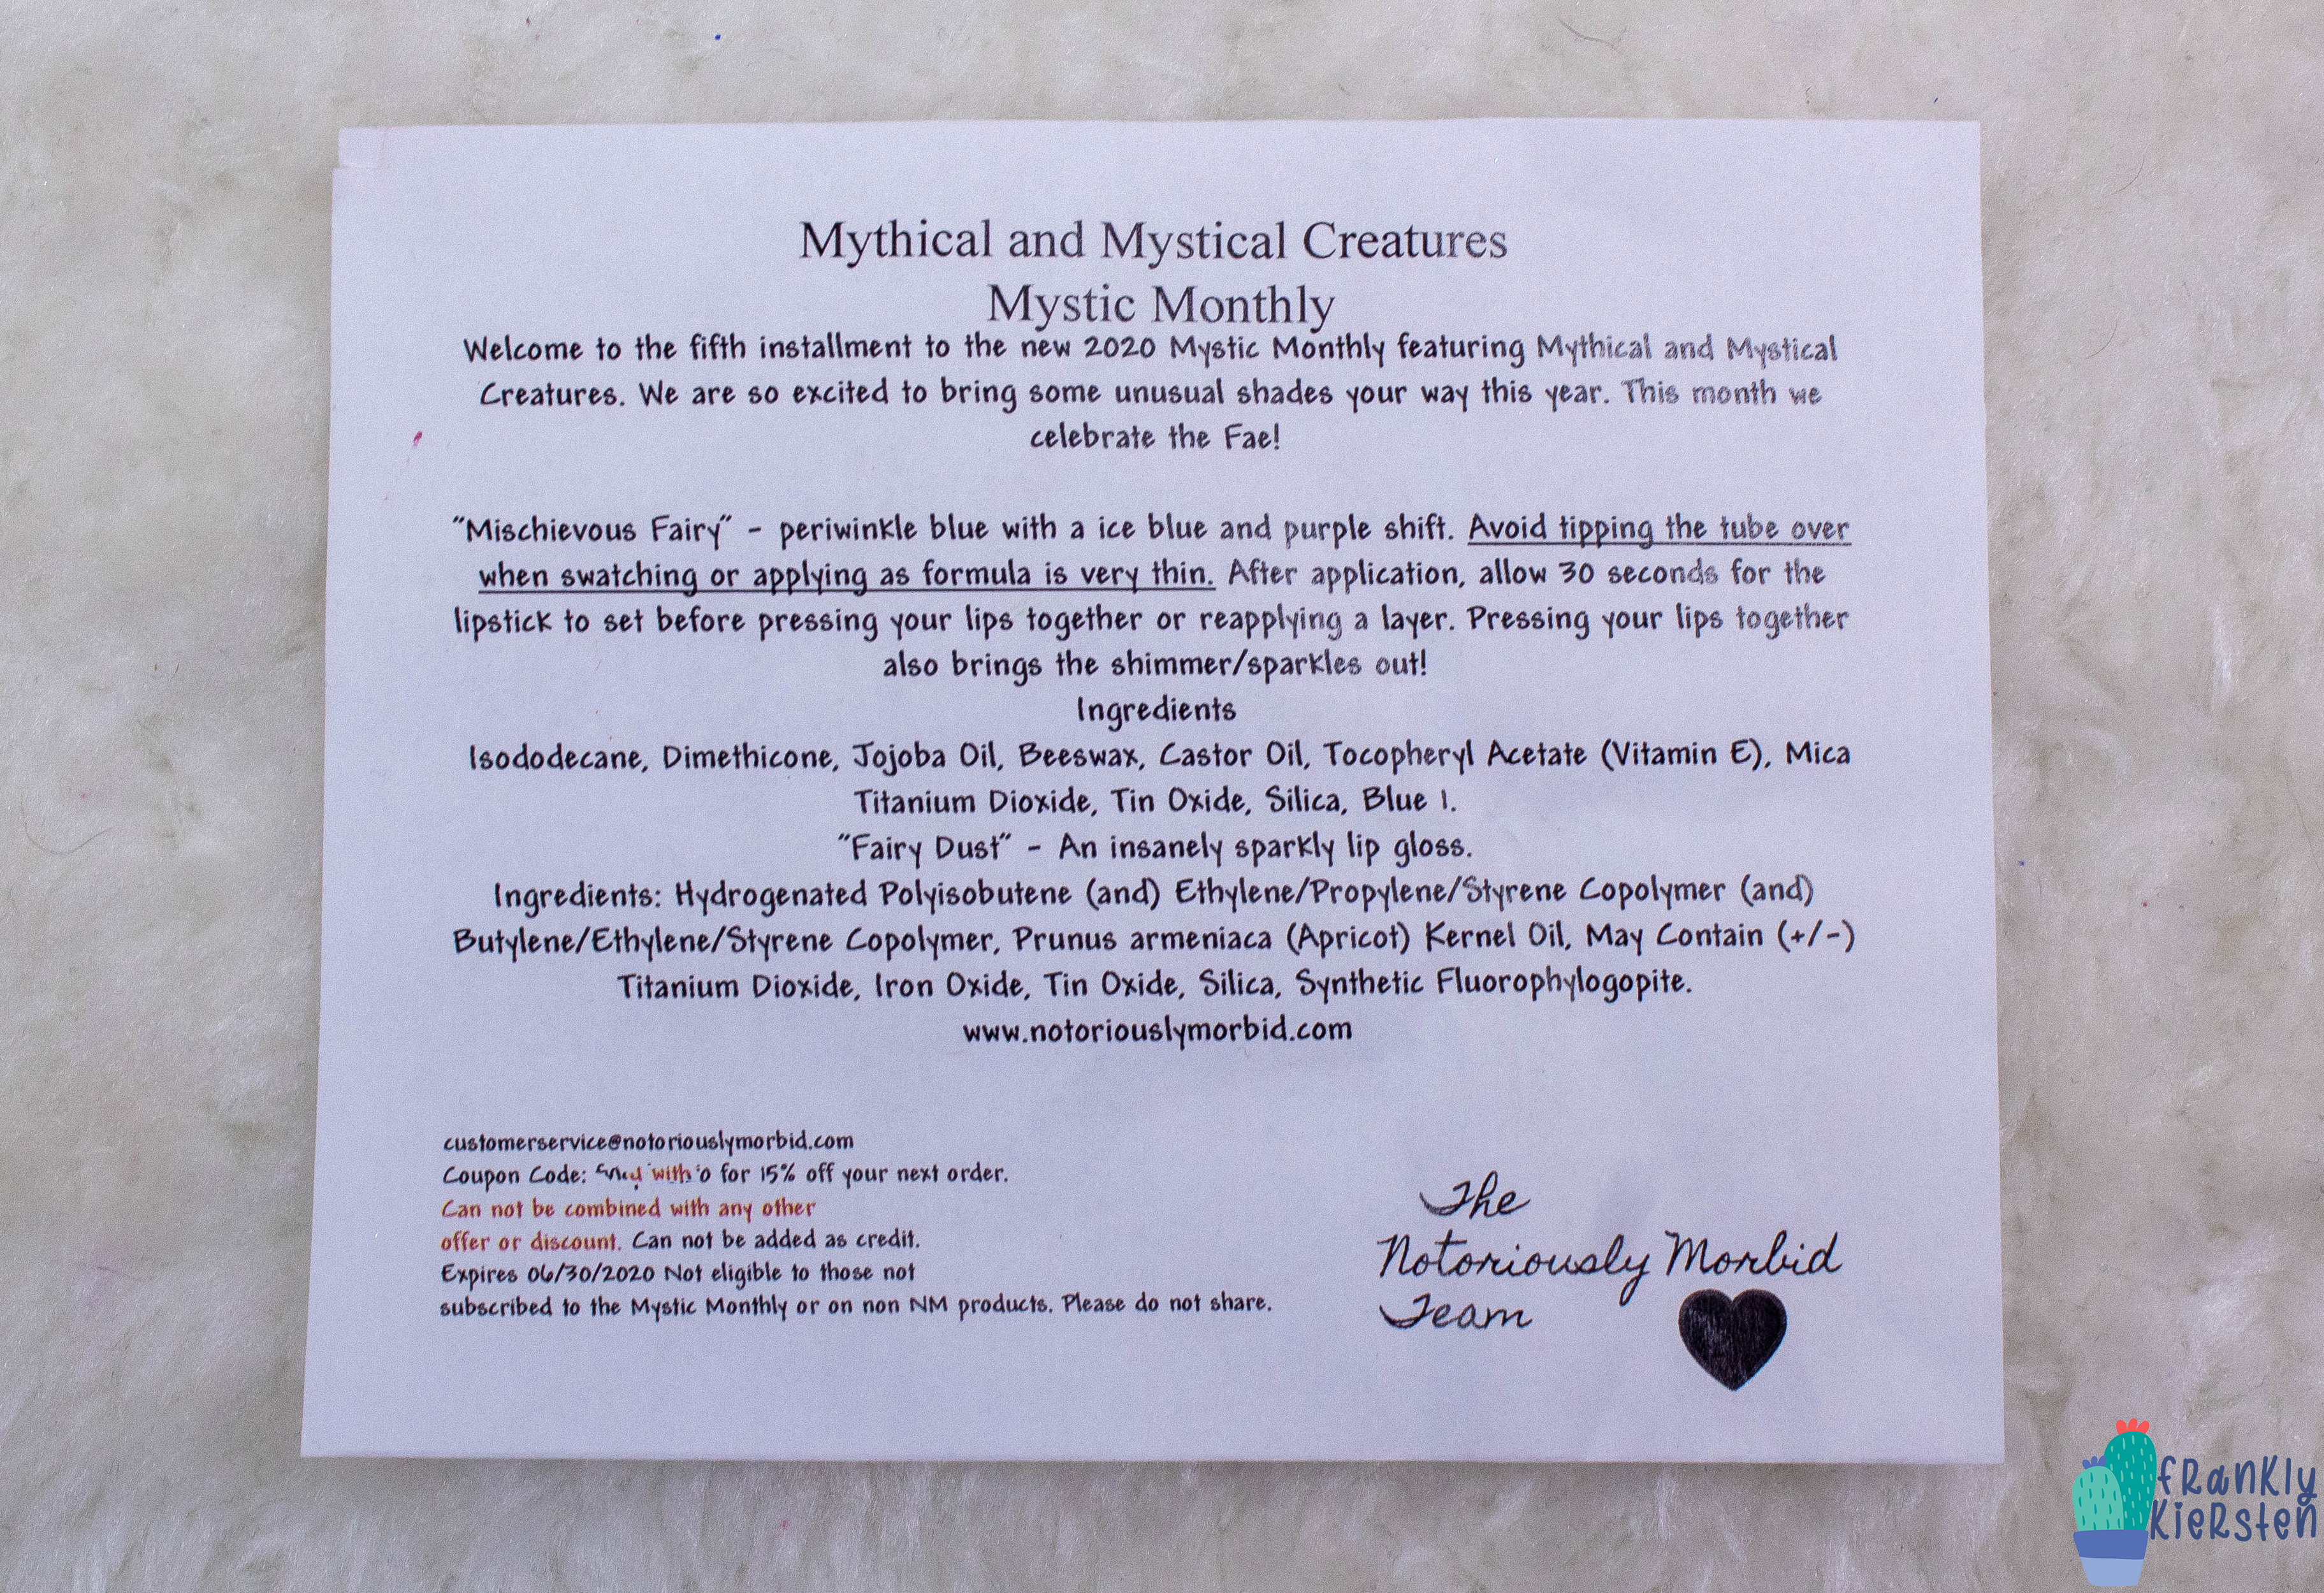 Mythical and Mystical Creatures
Mystic Monthly
Welcome to the fifth installment to the new 2020 Mystic Monthly featuring Mythical and Mystical
Creatures. We are so excited to bring some unusual shades your way this year. This month we
celebrate the Fae!
"Mischievous Fairy" - periwinkle blue with a ice blue and purple shift. Avoid tipping the tube over
when swatching or applying as formula is very thin. After application, allow 30 seconds for the
lipstick to set before pressing your lips together or reapplying a layer. Pressing your lips together
also brings the shimmer/sparkles out!
Ingredients
Isododecane, Dimethicone, Jojoba Oil, Beeswax, Castor Oil, Tocopheryl Acetate (Vitamin E), Mica
Titanium Dioxide, Tin Oxide, Silica, Blue 1.
"Fairy Dust" - An insanely sparkly lip gloss.
Ingredients: Hydrogenated Polyisobutene (and) Ethylene/Propylene/Styrene Copolymer (and)
Butylene/Ethylene/Styrene Copolymer, Prunus armeniaca (Apricot) Kernel Oil, May Contain (+/-)
Titanium Dioxide, Iron Oxide, Tin Oxide, Silica, Synthetic Fluorophylogopite.
www.notoriouslymorbid.com
customerservice@notoriouslymorbid.com
Coupon Code: with for 15% off your next order.
Can not be combined with any other
offer or discount. Can not be added as credit.
Expires 06/30/2020 Not eligible to those not
subscribed to the Mystic Monthly or on non NM products. Please do not share.
The
Notoriously Morbid
Team
fRanKly
KieRsten